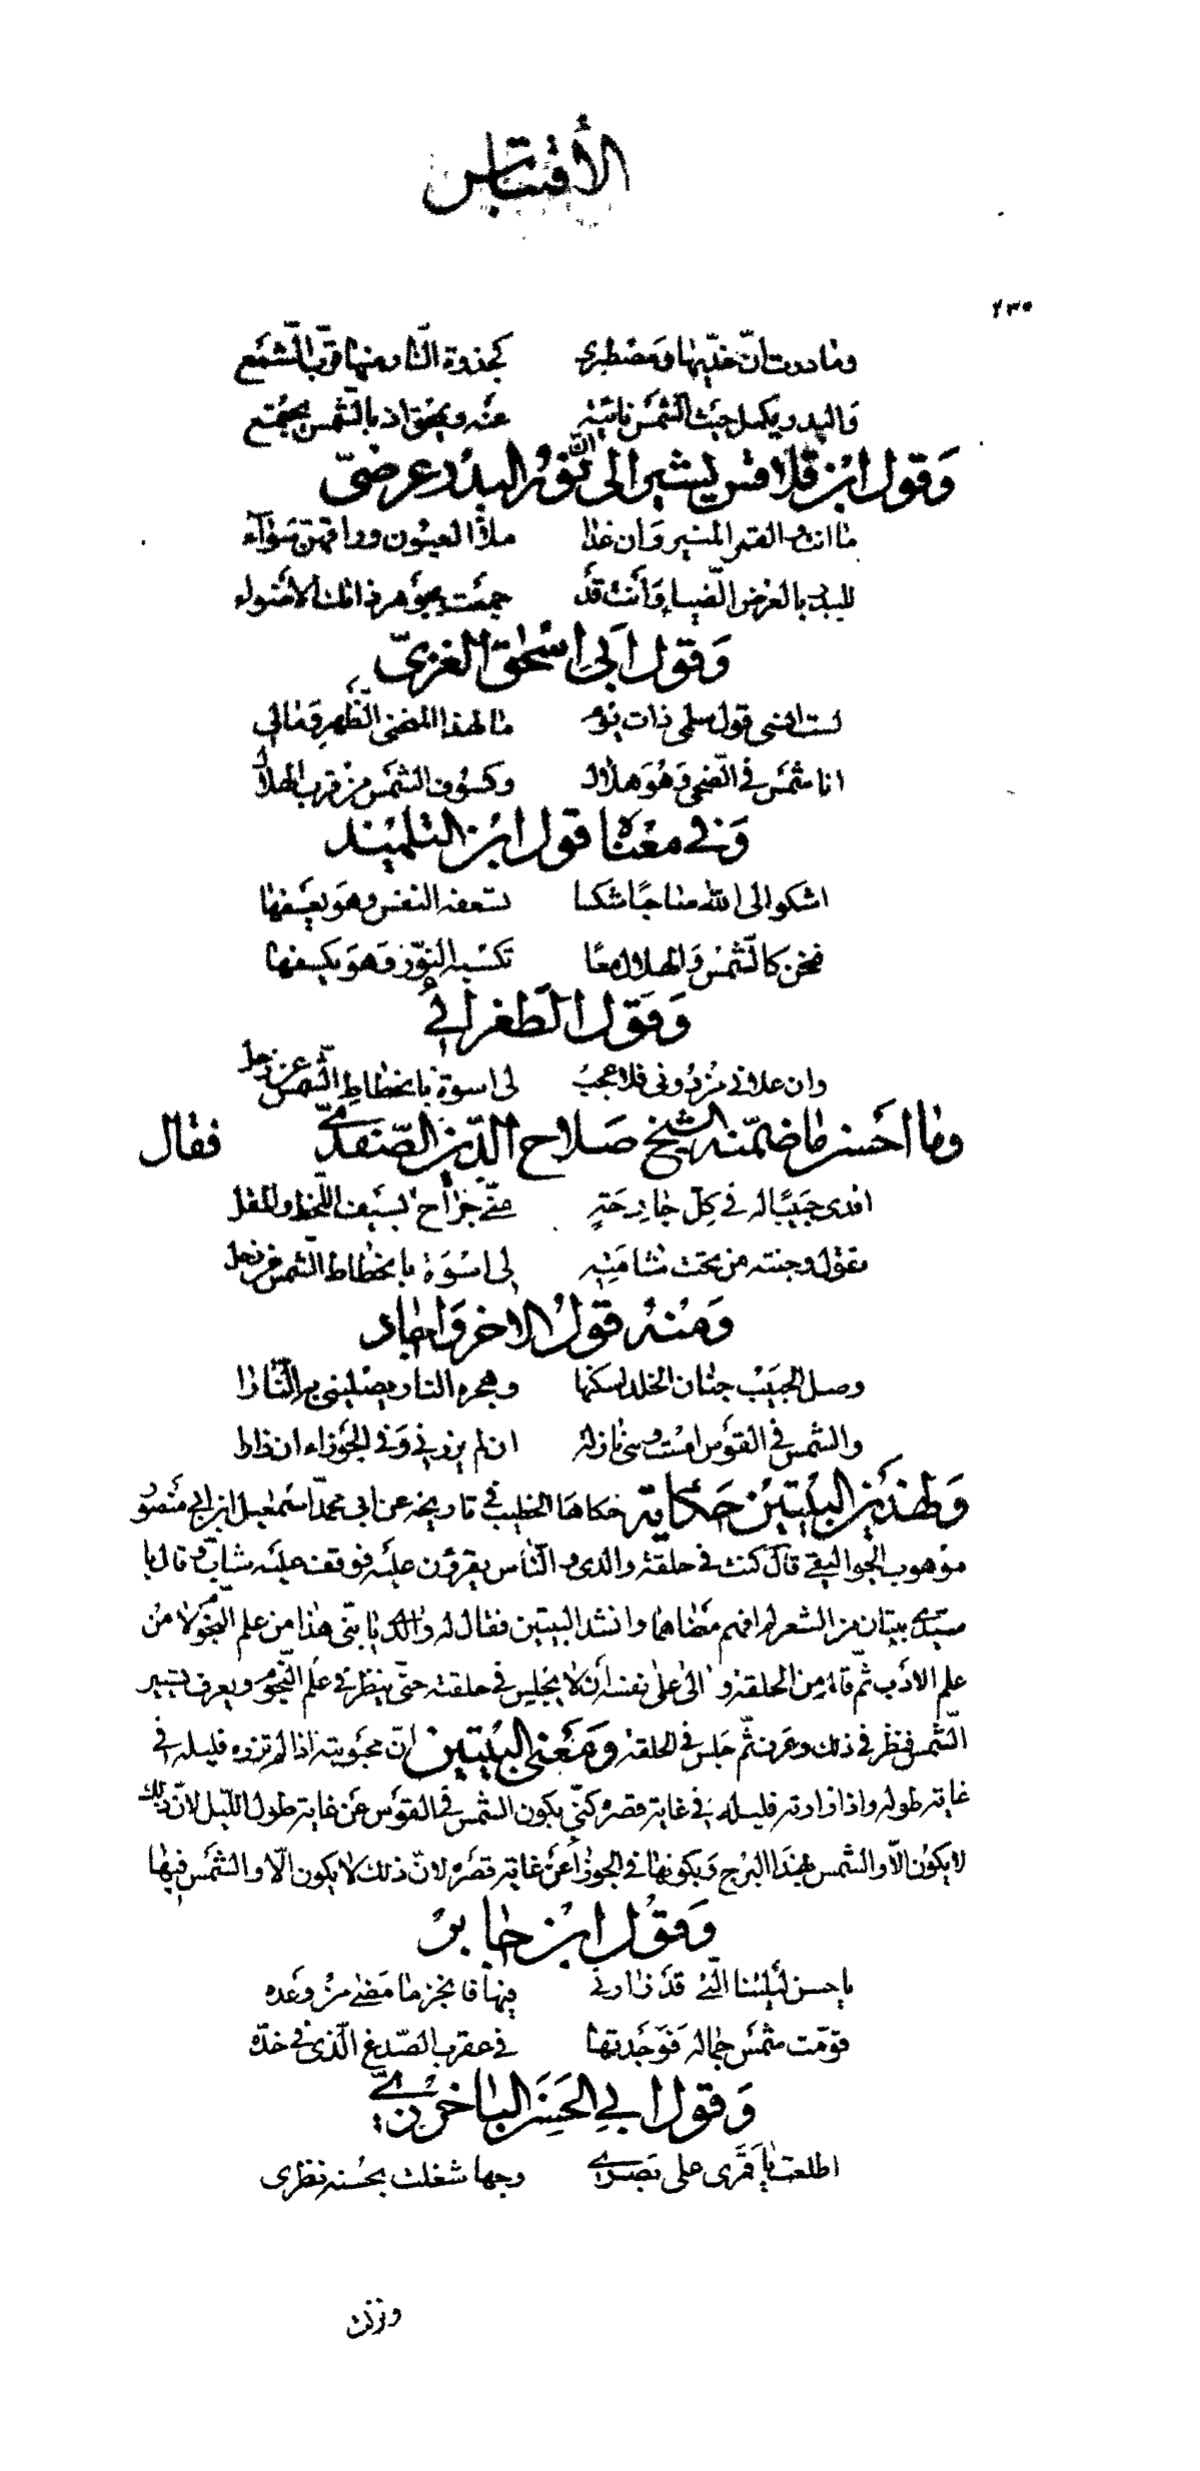 الأقتباس
٢٣٠
وما دوت انّ خدّيها ومصطبري كجذوة النّار منها قرّب الشمع
والبدر يكمل حيث الشمس نائية عنه ويمحق اذ بالشمس يجتمع
وقول ابن قلاقس يشير الى انّ نور البدر عرضىّ
ما انت والقمر المنير وان غدا ملأ العيون وراقهن سوآء
للبدر بالعرض الضياء وأنت قد جمعت بجوهر ذاتك الأضواء
وقول ابى اسحٰق الغزىّ
لست انسى قول سلمى ذات يوم ما لهذا المنحنى الظهر ومالى
انا شمس فى الضحى وهو هلال وكسوف الشمس من قرب الهلال
وفى معناه قول ابن التلميذ
اشكوا الى الله صاحبًا شكسا تسعفه النفس وهو يعسفها
فنحن كالشمس والهلال معًا تكسبه النور وهو يكسفها
وقول الطغرائى
وان علانى من دونى فلا عجب لى اسوة بانحطاط الشمس عن زحل
وما احسن ما ضمّنه الشيخ صلاح الدّين الصّفدىّ فقال
افدى حبيبًا له فى كل جارحة منّى جراح بسيف اللحظ والمقل
تقول وجنته من تحت شامته لى اسوة بانحطاط الشمس عن زحل
ومنه قول الاخر واجاد
وصل الحبيب جنان الخلد اسكنها وهجره النار يصلينى به النّارا
والشمس فى القوس امست وهى نازلة ان لم يزرنى وفى الجوزاء ان زارا
ولهذين البيتين حكاية حكاها الخطيب فى تاريخه عن ابى محمد اسمعيل ابن ابى منصور
موهوب الجواليقى قال كنت فى حلقة والدى والنّاس يقرؤن عليه فوقف عليه شابّ وقال يا
سيدى بيتان من الشعر لم افهم معناهما وانشد البيتين فقال له والدى يا بنّى هذا من علم النجوم لا من
علم الادب ثمّ قام من الحلقة وآلى على نفسه أن لا يجلس فى حلقته حتّى ينظر فى علم النّجوم ويعرف تسيير
الشمس فنظر فى ذلك وعرف ثمّ جلس فى الحلقة ومعنى البيتين انّ محبوبته اذا لم تزره فليله فى
غاية طوله واذا زارته فليله فى غاية قصره كنّى بكون الشمس فى القوس عن غاية طول الليل لانّ ذلك
لا يكون الّا والشمس بهذا البرج وبكونها فى الجوزا عن غاية قصره لانّ ذلك لا يكون الّا والشمس فيها
وقول ابن جابر
يا حسن ليلتنا الّتى قد زارنى فيها فانجز ما مضى من وعده
قوّمت شمس جماله فوجدتها فى عقرب الصّدغ الّذى فى خدّه
وقول ابى الحسن الباخرزى
اطلعت يا قمرى على بصرى وجها شغلت بحسنه نظرى
ونزلت